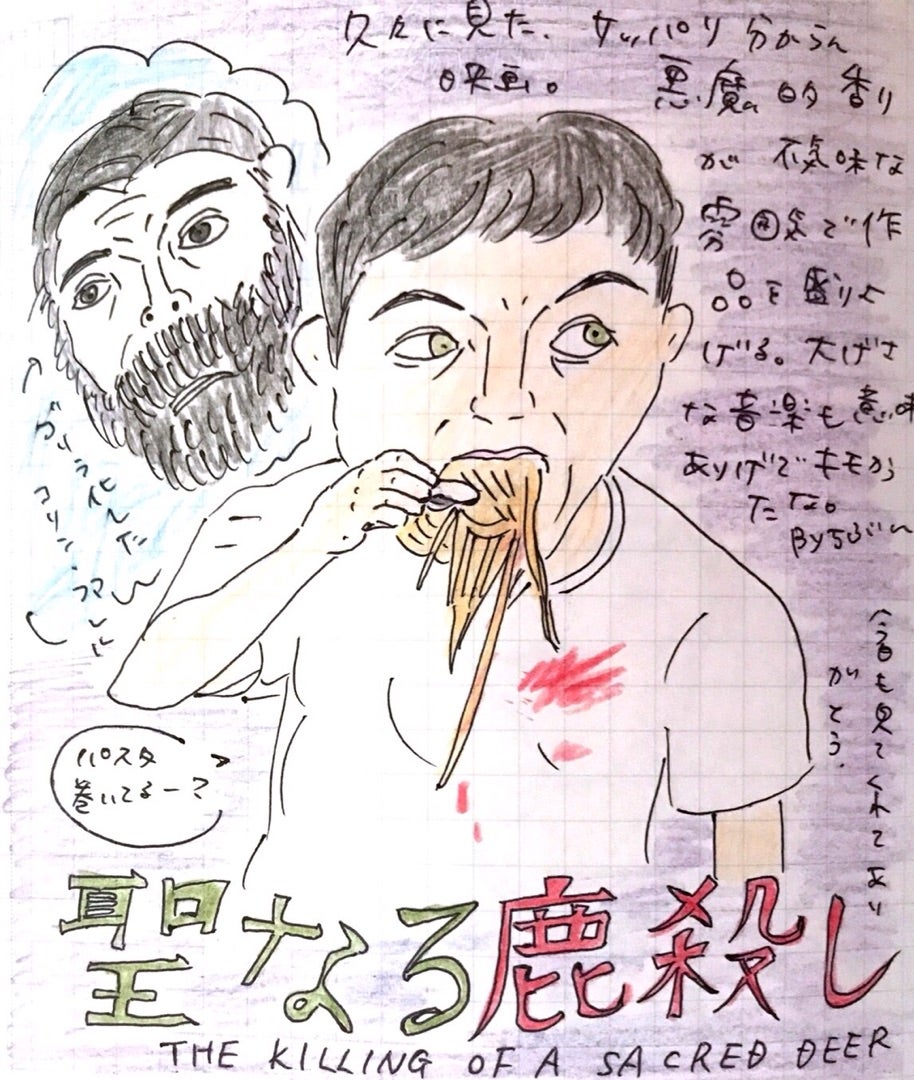 久々に見た、サッパリ分からん
映画。悪魔的香り
が不気味な
雰囲気で作
品を盛り上
げる。大げさ
な音楽も意味
ありげでキモかっ
たな。
By ちびぃ
今日も見てくれてあり
がとう。
ゴリラ化した
コリン
ファレル
パスタ
巻いてるー?
聖なる鹿殺し
THE KILLING OF A SACRED DEER